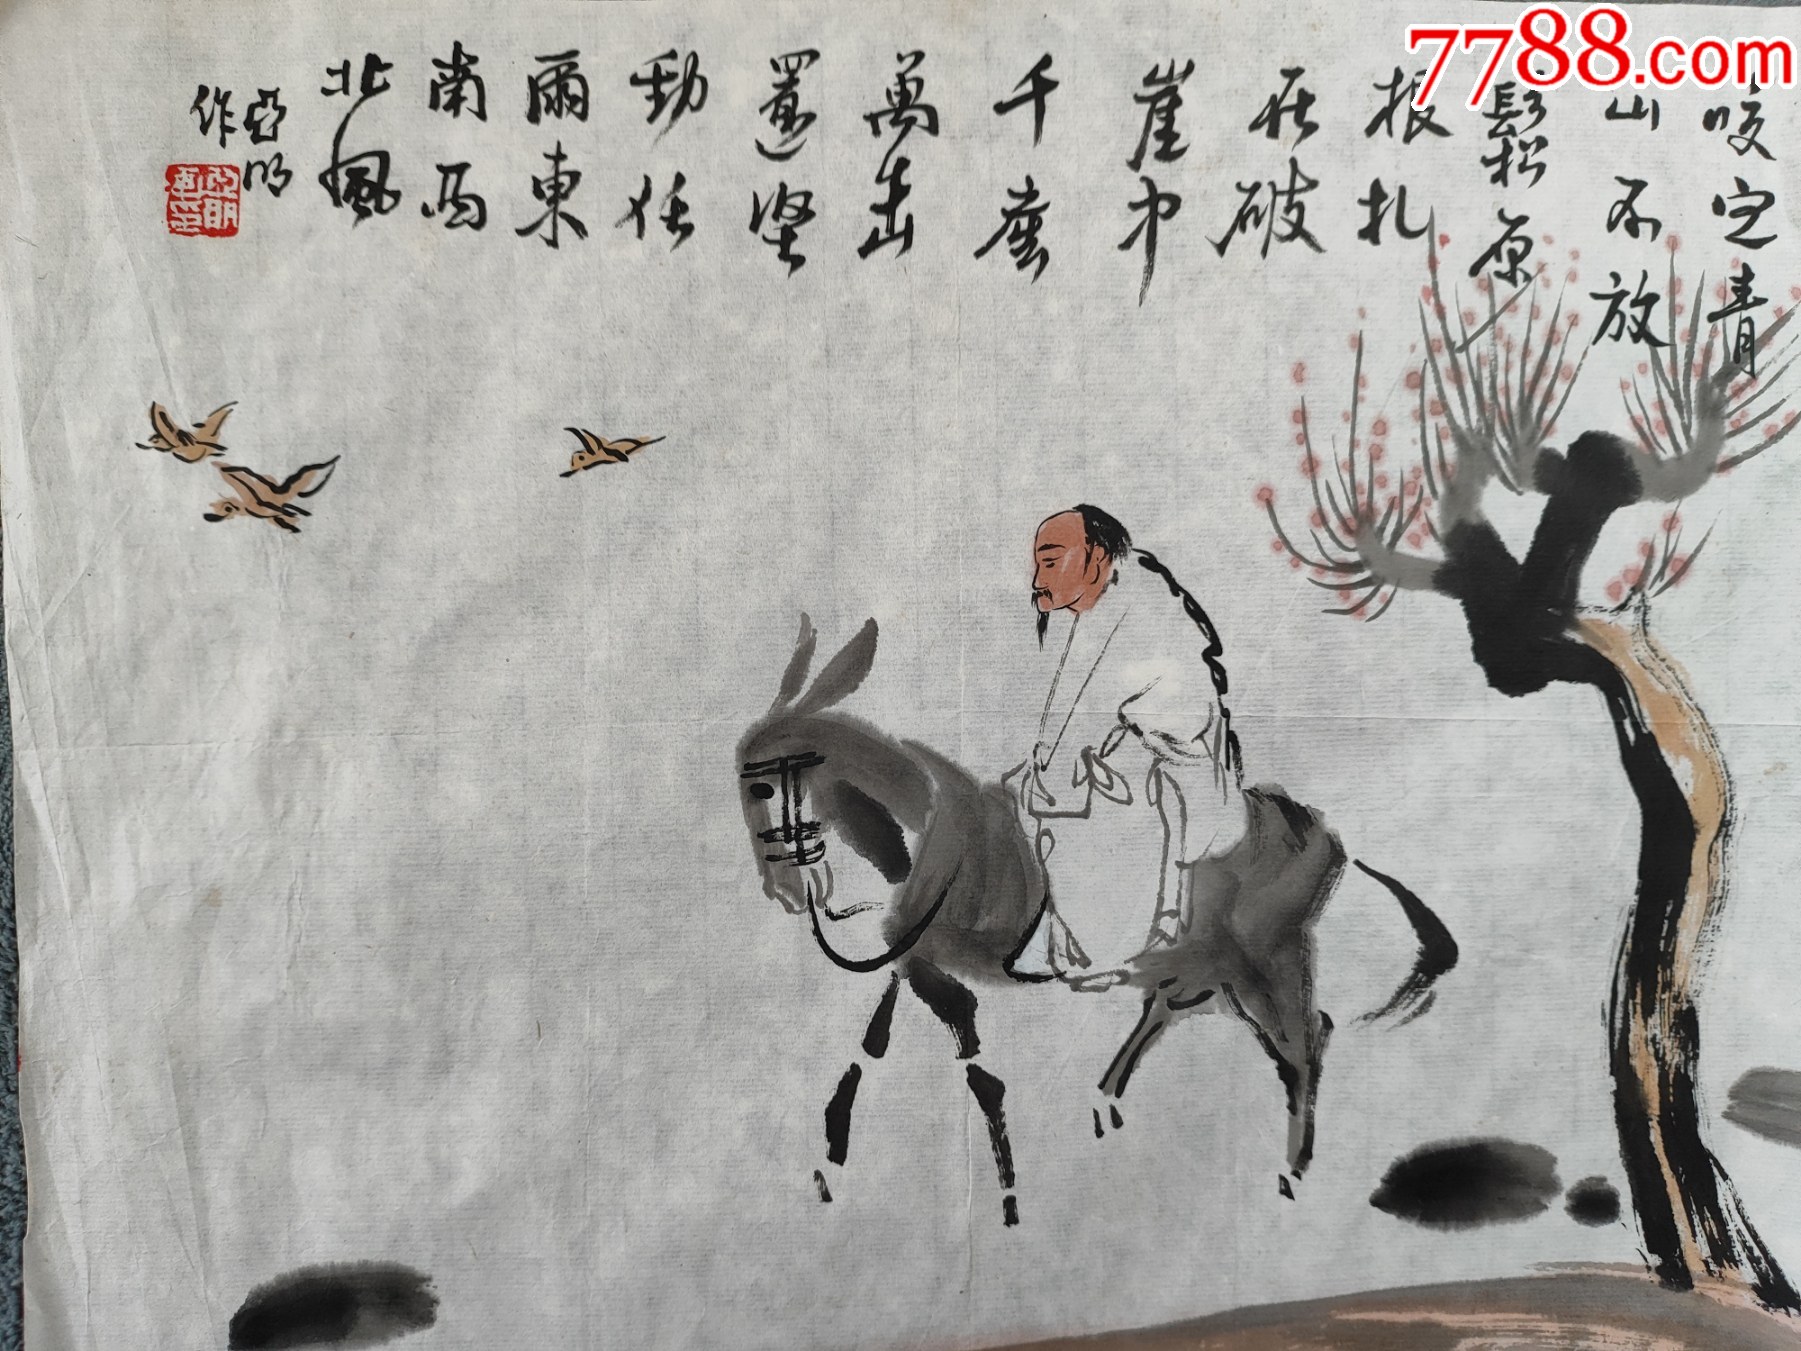 7788.com
咬定青
山不放
鬆原
根扎
在破
崖中
千磨
萬击
還坚
劲任
爾東
南西
北風
亞明
作